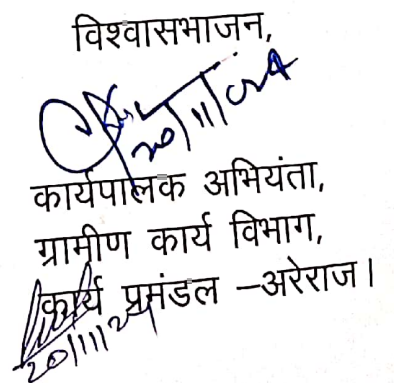 विश्वासभाजन,
20/11/024
कार्यपालक अभियंता,
ग्रामीण कार्य विभाग,
कार्य प्रमंडल –अरेराज।
20/11/24